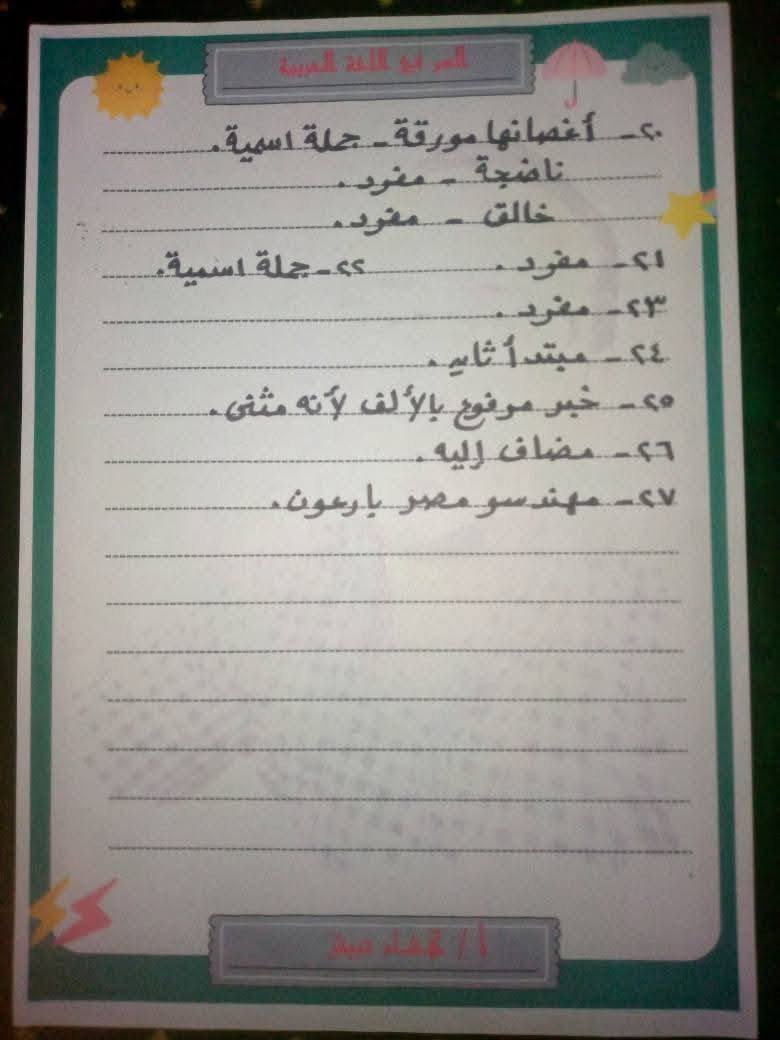 السر في اللغة العربية
٢٠- أغصانها مورقة - جملة اسمية.
ناضجة - مفرد.
خالق - مفرد.
٢١- مفرد. ٢٢- جملة اسمية.
٢٣- مفرد.
٢٤- مبتدأ ثانٍ.
٢٥- خبر مرفوع بالألف لأنه مثنى.
٢٦- مضاف إليه.
٢٧- مهندسو مصر بارعون.
أ /